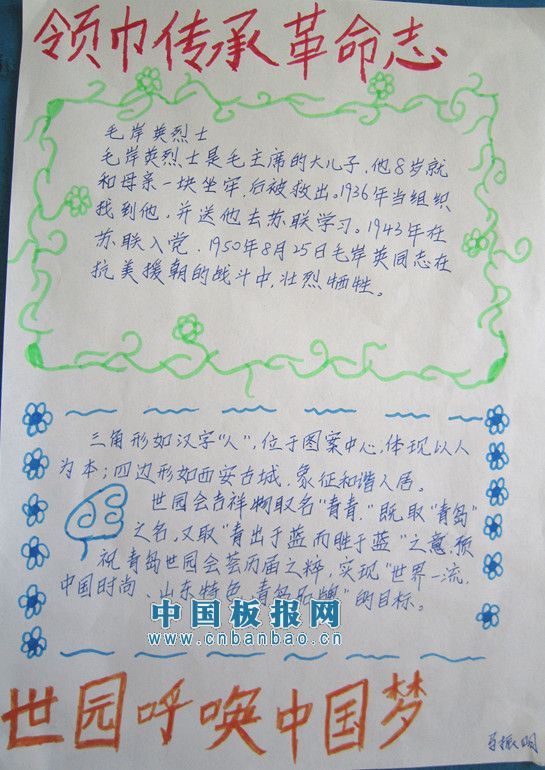 领巾传承革命志
毛岸英烈士
毛岸英烈士是毛主席的大儿子，他8岁就
和母亲一块坐牢，后被救出。1936年当组织
找到他，并送他去苏联学习。1943年在
苏联入党，1950年8月25日毛岸英同志在
抗美援朝的战斗中，壮烈牺牲。
三角形如汉字"人"，位于图案中心，体现以人
为本；四边形如西安古城，象征和谐人居。
世园会吉祥物取名"青青"，既取"青岛"
之名，又取"青出于蓝而胜于蓝"之意，预
祝青岛世园会荟历届之粹，实现"世界一流，
中国时尚、山东特色、青岛品牌"的目标。
中国板报网
www.cnbanbao.cn
世园呼唤中国梦